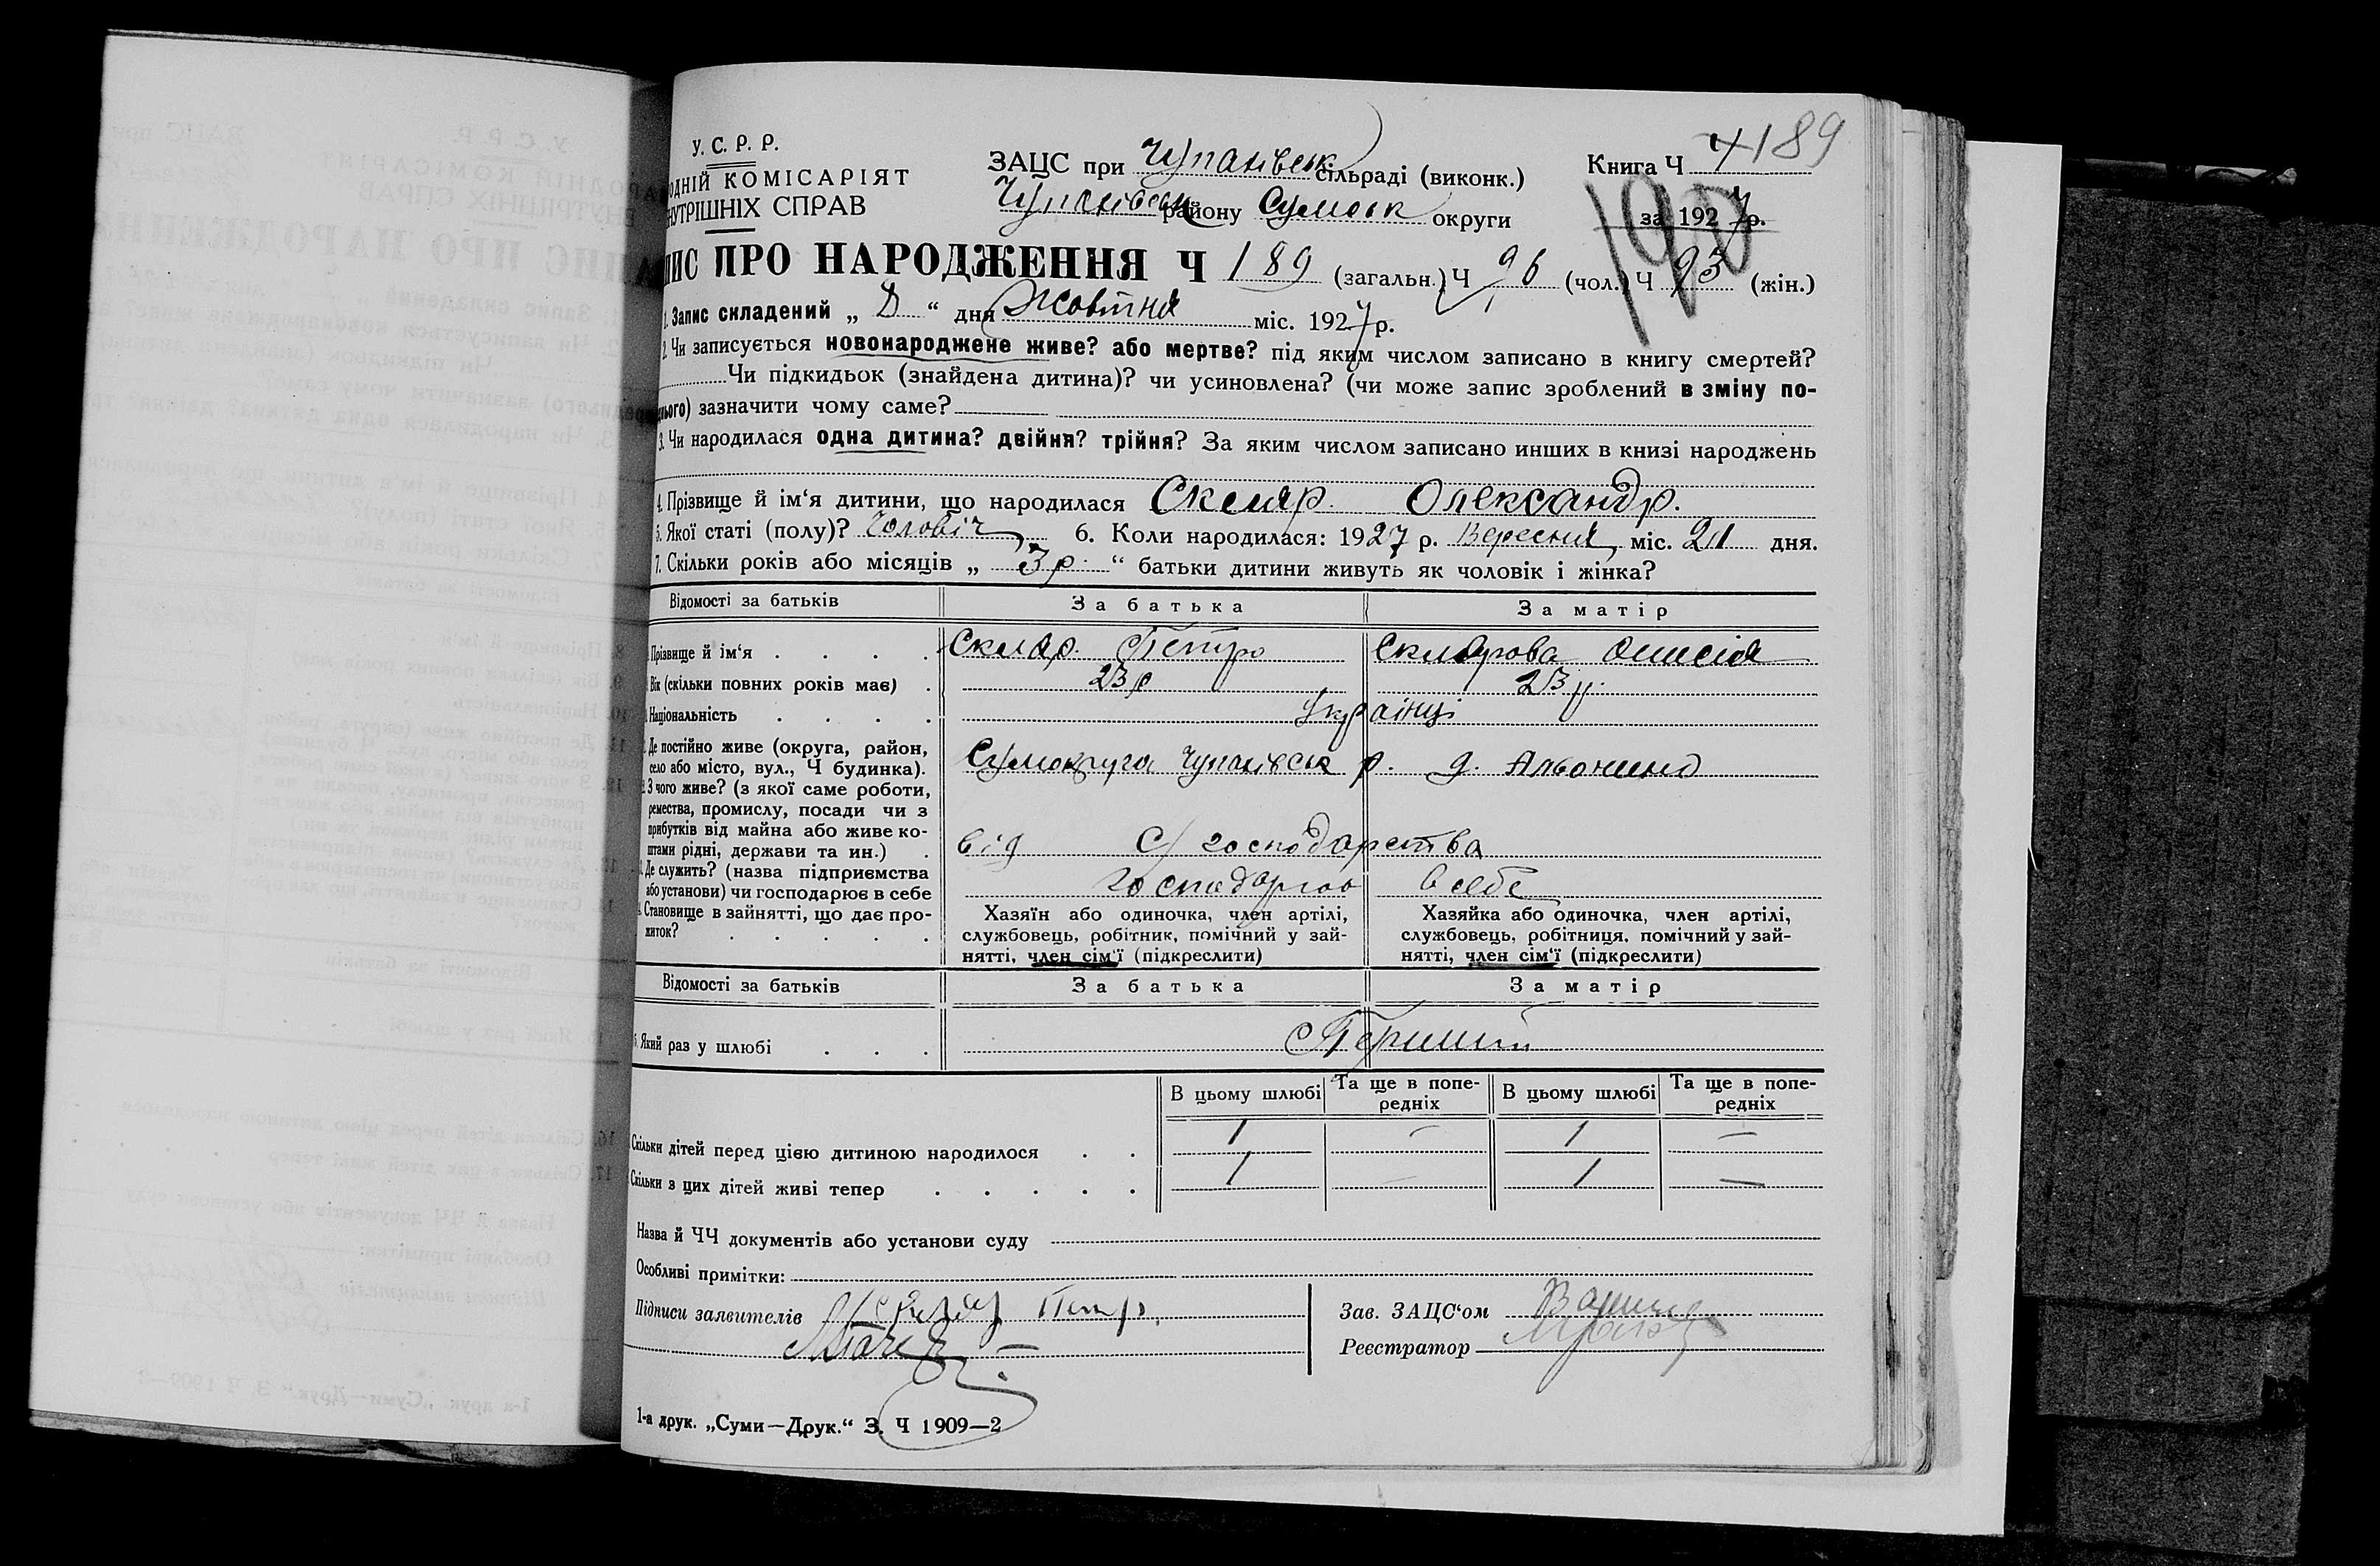 189
У. С. Р. Р.
ЗАЦС при Чупахівськ. сільраді (виконк.)
Книга Ч
ОДНІЙ КОМІСАРІЯТ
Чупахівськ району Сумськ округи
за 1927 р.
НУТРІШНІХ СПРАВ
190
ПИС ПРО НАРОДЖЕННЯ Ч 189 (загальн.) Ч 96 (чол.) Ч 93 (жін.)
1. Запис складений „ 8 “ дня Жовтня міс. 1927 р.
2. Чи записується новонароджене живе? або мертве? під яким числом записано в книгу смертей?
Чи підкидьок (знайдена дитина)? чи усиновлена? (чи може запис зроблений в зміну по-
нього) зазначити чому саме?
3. Чи народилася одна дитина? двійня? трійня? За яким числом записано инших в книзі народжень
4. Прізвище й ім‘я дитини, що народилася Скляр. Олександр.
5. Якої статі (полу)? Чоловіч 6. Коли народилася: 1927 р. Вересня міс. 21 дня.
7. Скільки років або місяців „ 3 р. “ батьки дитини живуть як чоловік і жінка?
Відомості за батьків За батька За матір
Прізвище й ім‘я Скляр. Петро Склярова
Вік (скільки повних років має) 23 р 23 р.
Національність Українці
Де постійно живе (округа, район,
село або місто, вул., Ч будинка). Сумокруга Чупахівськ р.
З чого живе? (з якої саме роботи,
ремества, промислу, посади чи з
прибутків від майна або живе ко-
штами рідні, держави та ин.) від С/господарства
Де служить? (назва підприємства
або установи) чи господарює в себе в себе
Становище в зайнятті, що дає про-
житок?
Хазяїн або одиночка, член артілі,
службовець, робітник, помічний у зай-
нятті, член сім‘ї (підкреслити)
Хазяйка або одиночка, член артілі,
службовець, робітниця, помічний у зай-
нятті, член сім‘ї (підкреслити)
Відомості за батьків За батька За матір
Який раз у шлюбі Перший
В цьому шлюбі Та ще в попе-
редніх В цьому шлюбі Та ще в попе-
редніх
Скільки дітей перед цією дитиною народилося 1 — 1 —
Скільки з цих дітей живі тепер 1 — 1 —
Назва й ЧЧ документів або установи суду
Особливі примітки:
Підписи заявителів Скляр Петр
Зав. ЗАЦС‘ом
Реєстратор
1-а друк. „Суми—Друк.“ З. Ч 1909—2